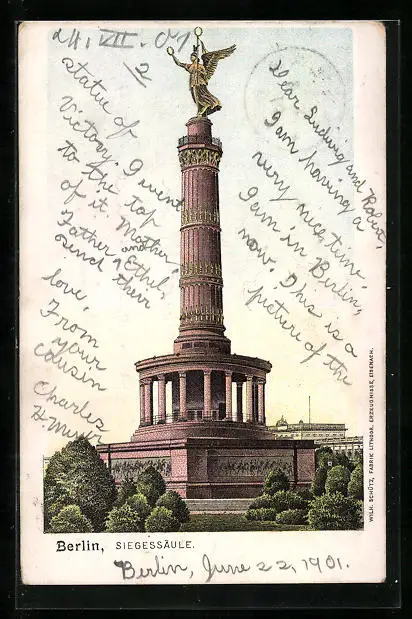 24. VII. 01
2
Dear Ludwig and Robert,
I am having a
very nice time.
I am in Berlin,
now. This is a
picture of the
statue of
Victory. I went
to the top
of it. Mother,
Father, and Ethel,
send their
love,
From
your
cousin
Charles
Berlin, SIEGESSÄULE.
Berlin, June 22, 1901.
WILH. SCHÜTZ, FABRIK LITHOGR. ERZEUGNISSE, EISENACH.